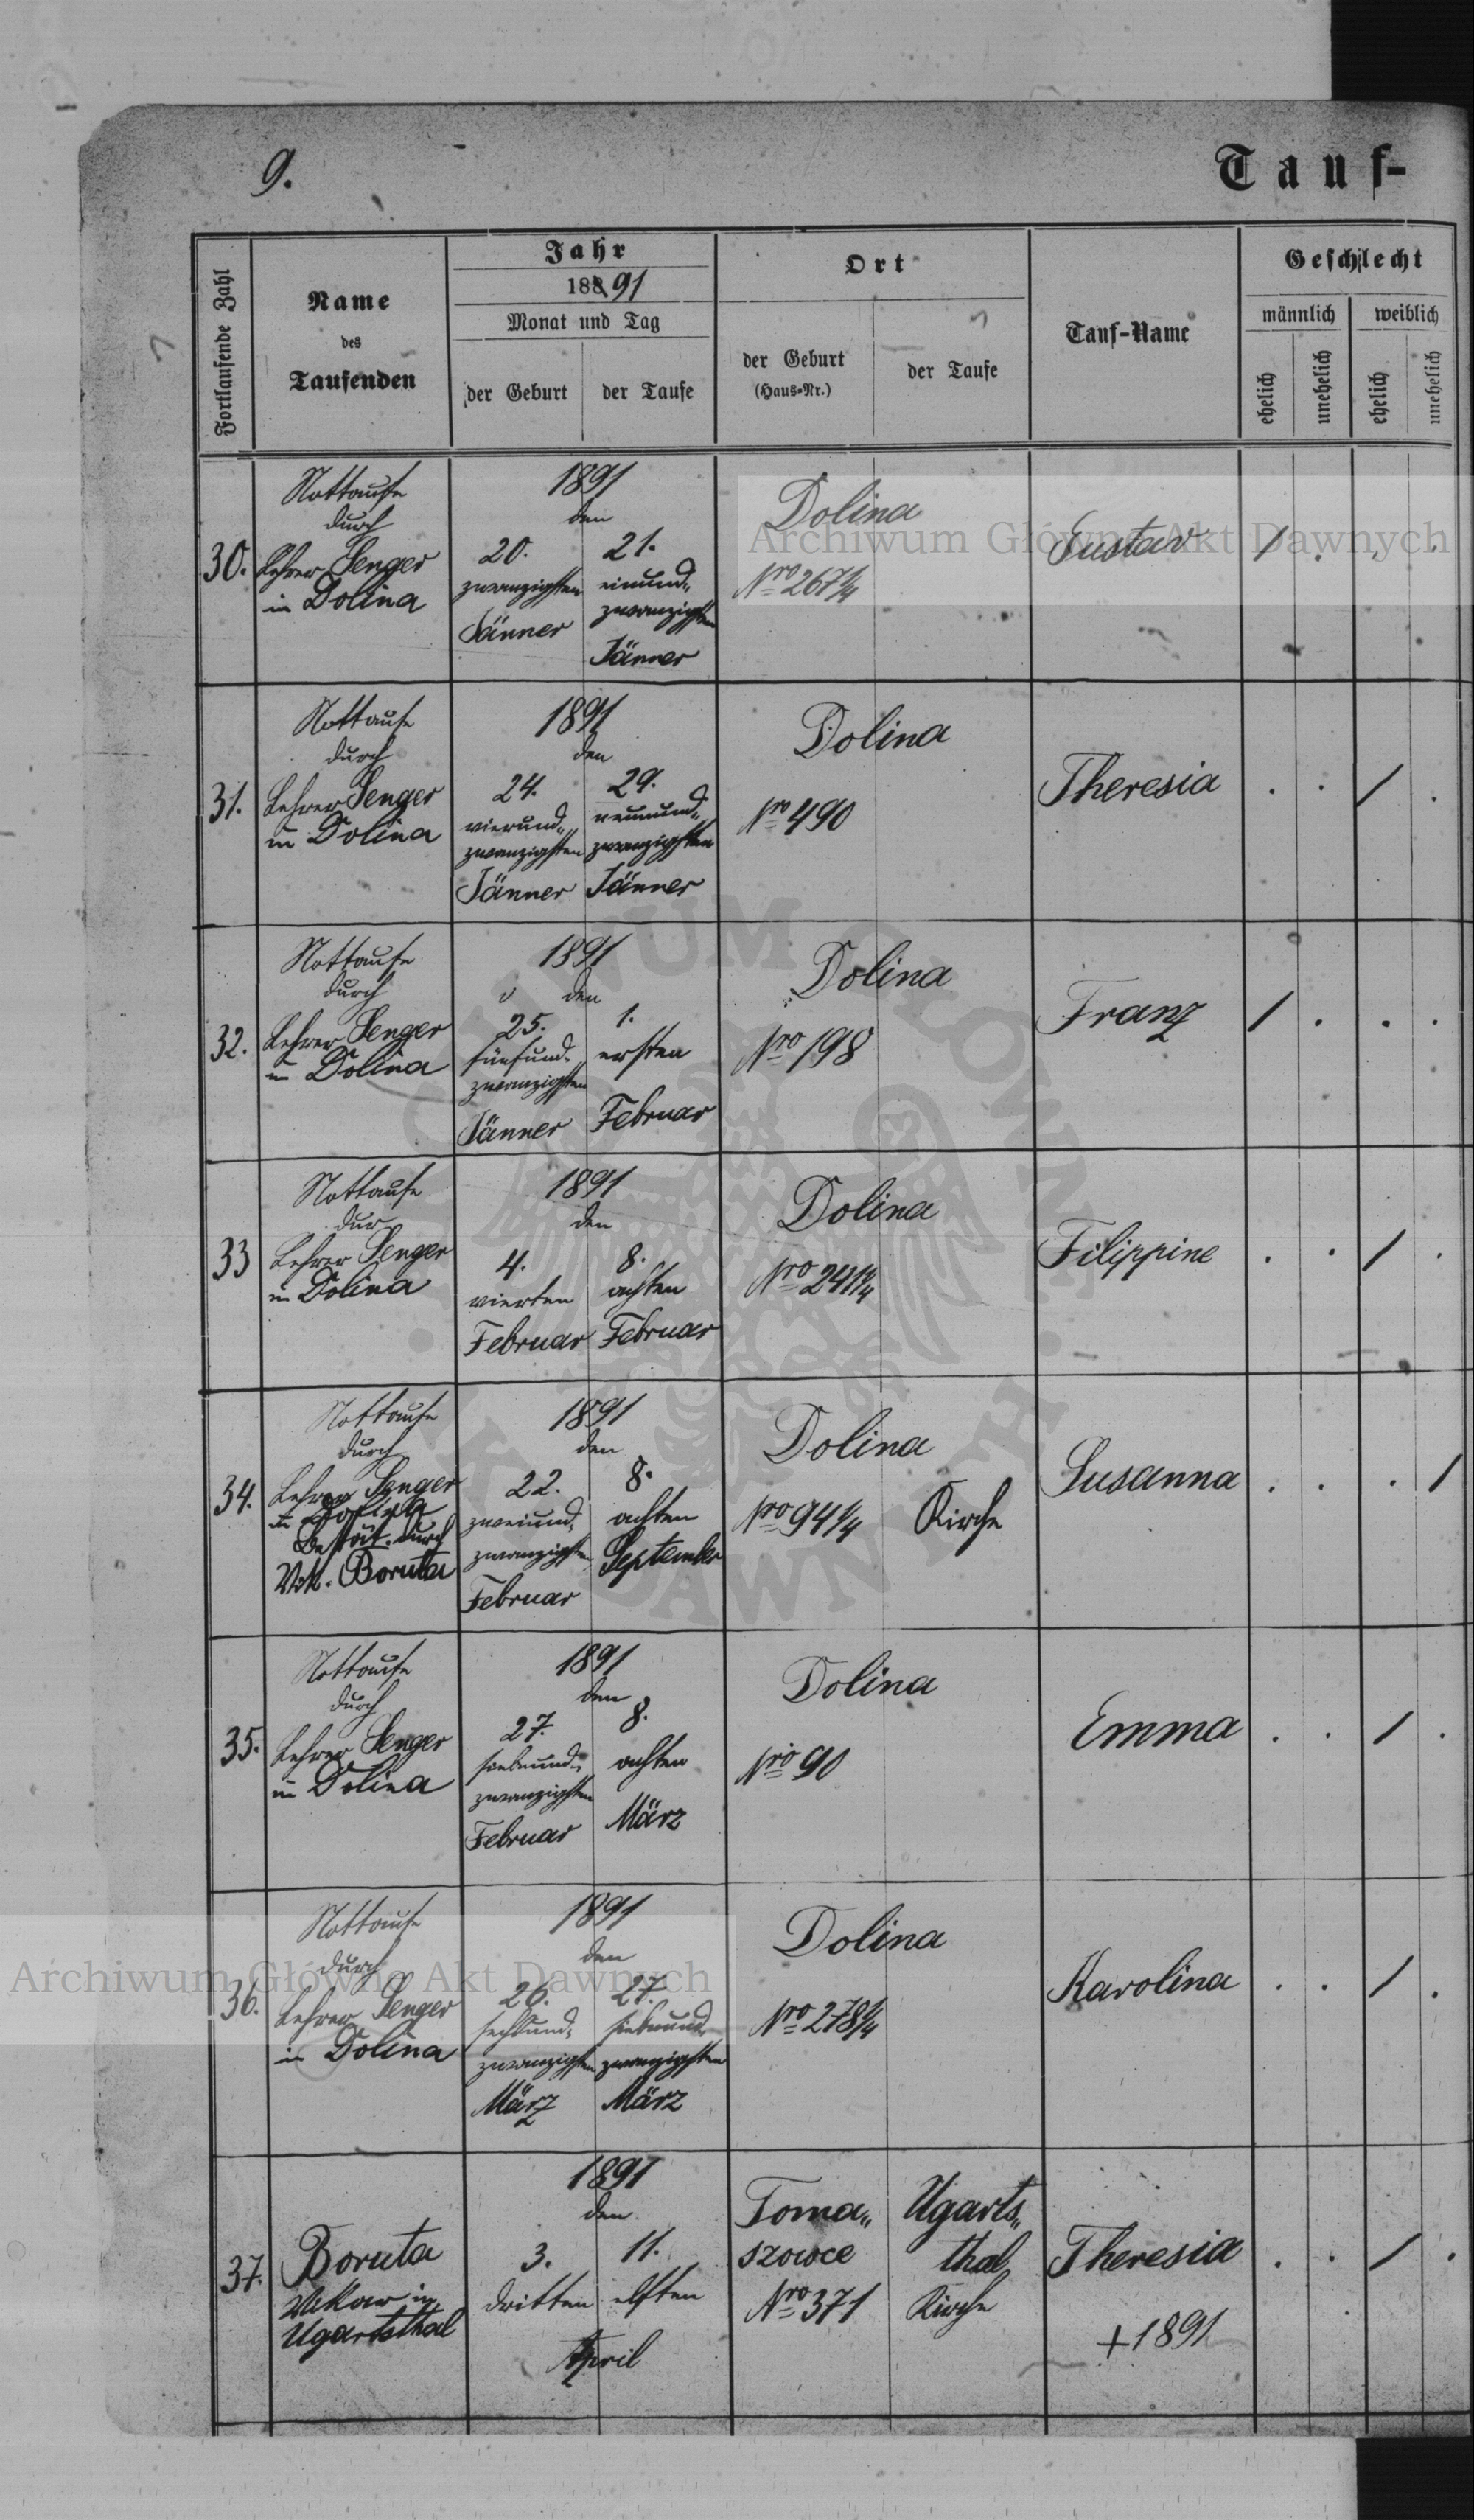 9.
Tauf-
Fortlaufende Zahl
Name
des
Taufenden
Jahr
188 91
Monat und Tag
der Geburt
der Taufe
Ort
der Geburt
(Haus-Nr.)
der Taufe
Tauf-Name
Geschlecht
männlich
weiblich
ehelich
unehelich
ehelich
unehelich
30.
Nottaufe
durch
Lehrer Senger
in Dolina
1891
den
20.
zwanzigsten
Jänner
21.
einund„
zwanzigsten
Jänner
Dolina
Nro 267 1/4
Gustav
/ . . .
31.
Nottaufe
durch
Lehrer Senger
in Dolina
1891
den
24.
vierund„
zwanzigsten
Jänner
29.
neunund„
zwanzigsten
Jänner
Dolina
Nro 490
Theresia
. . / .
32.
Nottaufe
durch
Lehrer Senger
in Dolina
1891
den
25.
fünfund„
zwanzigsten
Jänner
1.
ersten
Februar
Dolina
Nro 198
Franz
/ . . .
33
Nottaufe
dur
Lehrer Senger
in Dolina
1891
den
4.
vierten
Februar
8.
achten
Februar
Dolina
Nro 241 1/4
Filippine
. . / .
34.
Nottaufe
durch
Lehrer Senger
in Dolina
Bestät. durch
Vik. Boruta
1891
den
22.
zweiund„
zwanzigsten
Februar
8.
achten
September
Dolina
Nro 94 1/4
Kirche
Susanna
. . . /
35.
Nottaufe
durch
Lehrer Senger
in Dolina
1891
den
27.
siebenund„
zwanzigsten
Februar
8.
achten
März
Dolina
Nro 90
Emma
. . / .
36.
Nottaufe
durch
Lehrer Senger
in Dolina
1891
den
26.
sechsund„
zwanzigsten
März
27.
siebenund„
zwanzigsten
März
Dolina
Nro 278 1/4
Karolina
. . / .
37.
Boruta
Vikar in
Ugartsthal
1891
den
3.
dritten
11.
elften
April
Toma„
szowce
Nro 371
Ugarts„
thal
Kirche
Theresia
+1891
. . / .
Archiwum Główne Akt Dawnych
Archiwum Główne Akt Dawnych
ARCHIWUM GŁÓWNE
AKT DAWNYCH